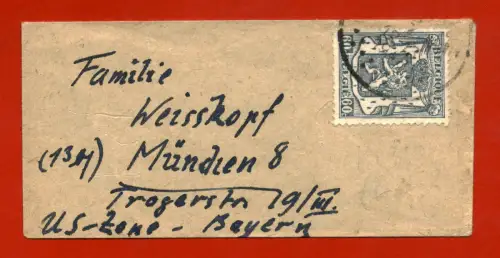 Familie
Weisskopf
(13b) München 8
Trogerstr 19/III.
US-Zone - Bayern
BELGIQUE
BELGIE